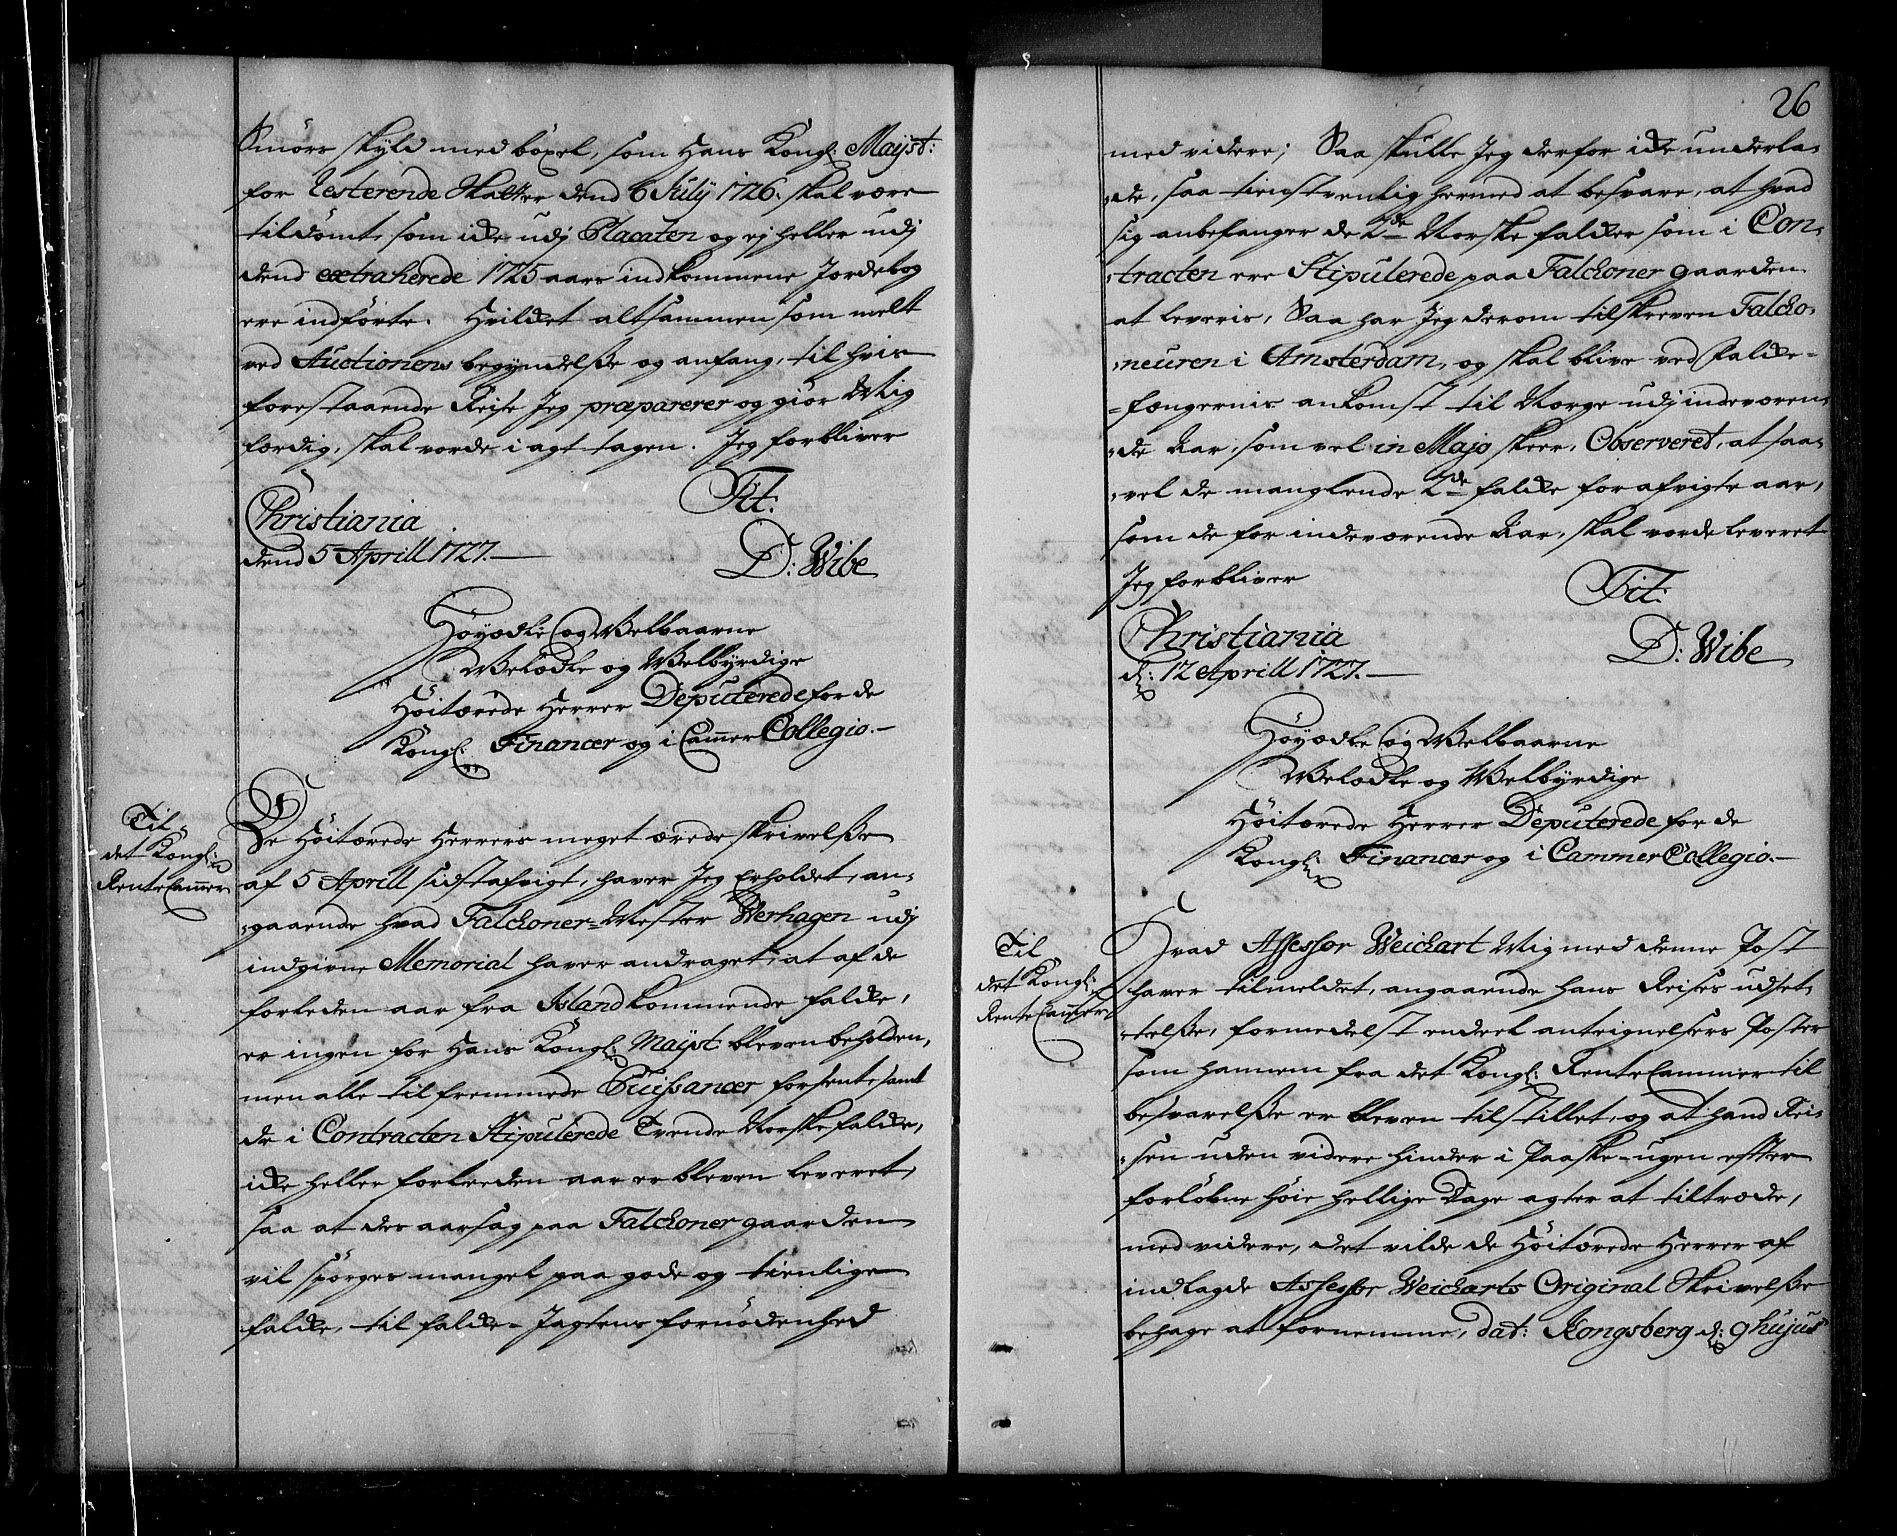 Smörs skyld med böxel, som Hans Kongl: Mayst:
for resterende Skatter dend 6 July 1726. skal være
tildömt, som icke udj Placaten og ej heller udj
dend extraherede 1725 aars indkommene Jordebog
ere indförte. Hvilcket altsammen som melt
ved Auctionens begyndelße og anfang, til hvis
forestaaende Reise Jeg præparerer og giör Mig
færdig, skal vorde i agt tagen. Jeg forbliver
Christiania
Tit:
dend 5 Aprill 1727.
D: Wibe
Höyædle og Velbaarne
Velædle og Velbyrdige
Höitærede Herrer Deputerede for de
Kongl: Financer og i Cammer Collegio.
Til
det Kongl:
Rente Cammer
De Höitærede Herrers meget ærede skrivelße
af 5 Aprill sidstafvigt, haver Jeg Erholdet, an-
gaaende hvad Falckoner-Mester Verhagen udj
indgivne Memorial haver andraget, at af de
forleden aar fra Island kommende falcke,
er ingen for Hans Kongl: Mayst: bleven beholden,
men alle til fremmede Puissancer forsent, samt
de i Contracten Stipulerede Tvende Norske falcke,
icke heller forleeden aar er bleven leveret,
saa at des aarsag paa Falckoner gaarden
vil spörges mangel paa gode og tienlige
falcke, til falcke-Jagtens fornödenhed
26
med videre; Saa skulle Jeg derfor icke underla-
de, saa tienstvenlig hermed at besvare, at hvad
sig anbefanger de 2de Norske falcker som i Con-
tracten ere Stipulerede paa Falckoner gaarden
at leveris, Saa har Jeg derom tilskreven Falcko-
neuren i Amsterdam, og skal blive ved Falcke-
fængernis ankomst til Norge udj indeværen-
de Aar, som vel in Majo skeer, Observeret, at saa-
vel de manglende 2de falcke for afvigte aar,
som de for indeværende Aar, skal vorde leveret
Jeg forbliver
Tit:
Christiania
D: Wibe
d: 12 Aprill 1727.
Höyædle og Velbaarne
Velædle og Velbyrdige
Höitærede Herrer Deputerede for de
Kongl: Financer og i Cammer Collegio.
Til
det Kongl:
Rente Cammer
Hvad Assessor Weichart Mig med denne Post
haver tilmeldet, angaaende hans Reises udset-
telße, formedelst endeel antegnelsers Poster
som hannem fra det Kongl: Rente Cammer til
besvarelße er bleven tilstillet, og at hand Rei-
sen uden videre hinder i Paaske-ugen efter
forlöbne höie hellige Dage agter at tiltræde,
med videre, det vilde de Höitærede Herrer af
indlagde Assessor Weicharts Original Skrivelße
behage at fornemme, dat: Kongsberg d: 9 hujus